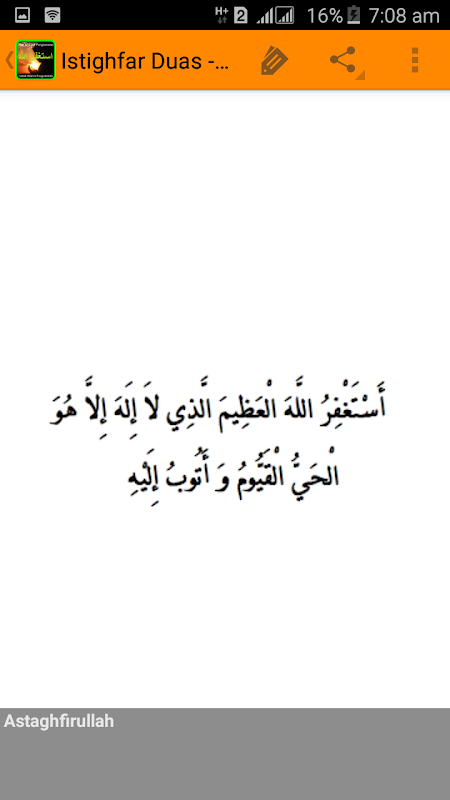 H+ 2 16% 7:08 am
Istighfar Duas -...
أَسْتَغْفِرُ اللَّهَ الْعَظِيمَ الَّذِي لاَ إِلَهَ إِلاَّ هُوَ
الْحَيُّ الْقَيُّومُ وَ أَتُوبُ إِلَيْهِ
Astaghfirullah